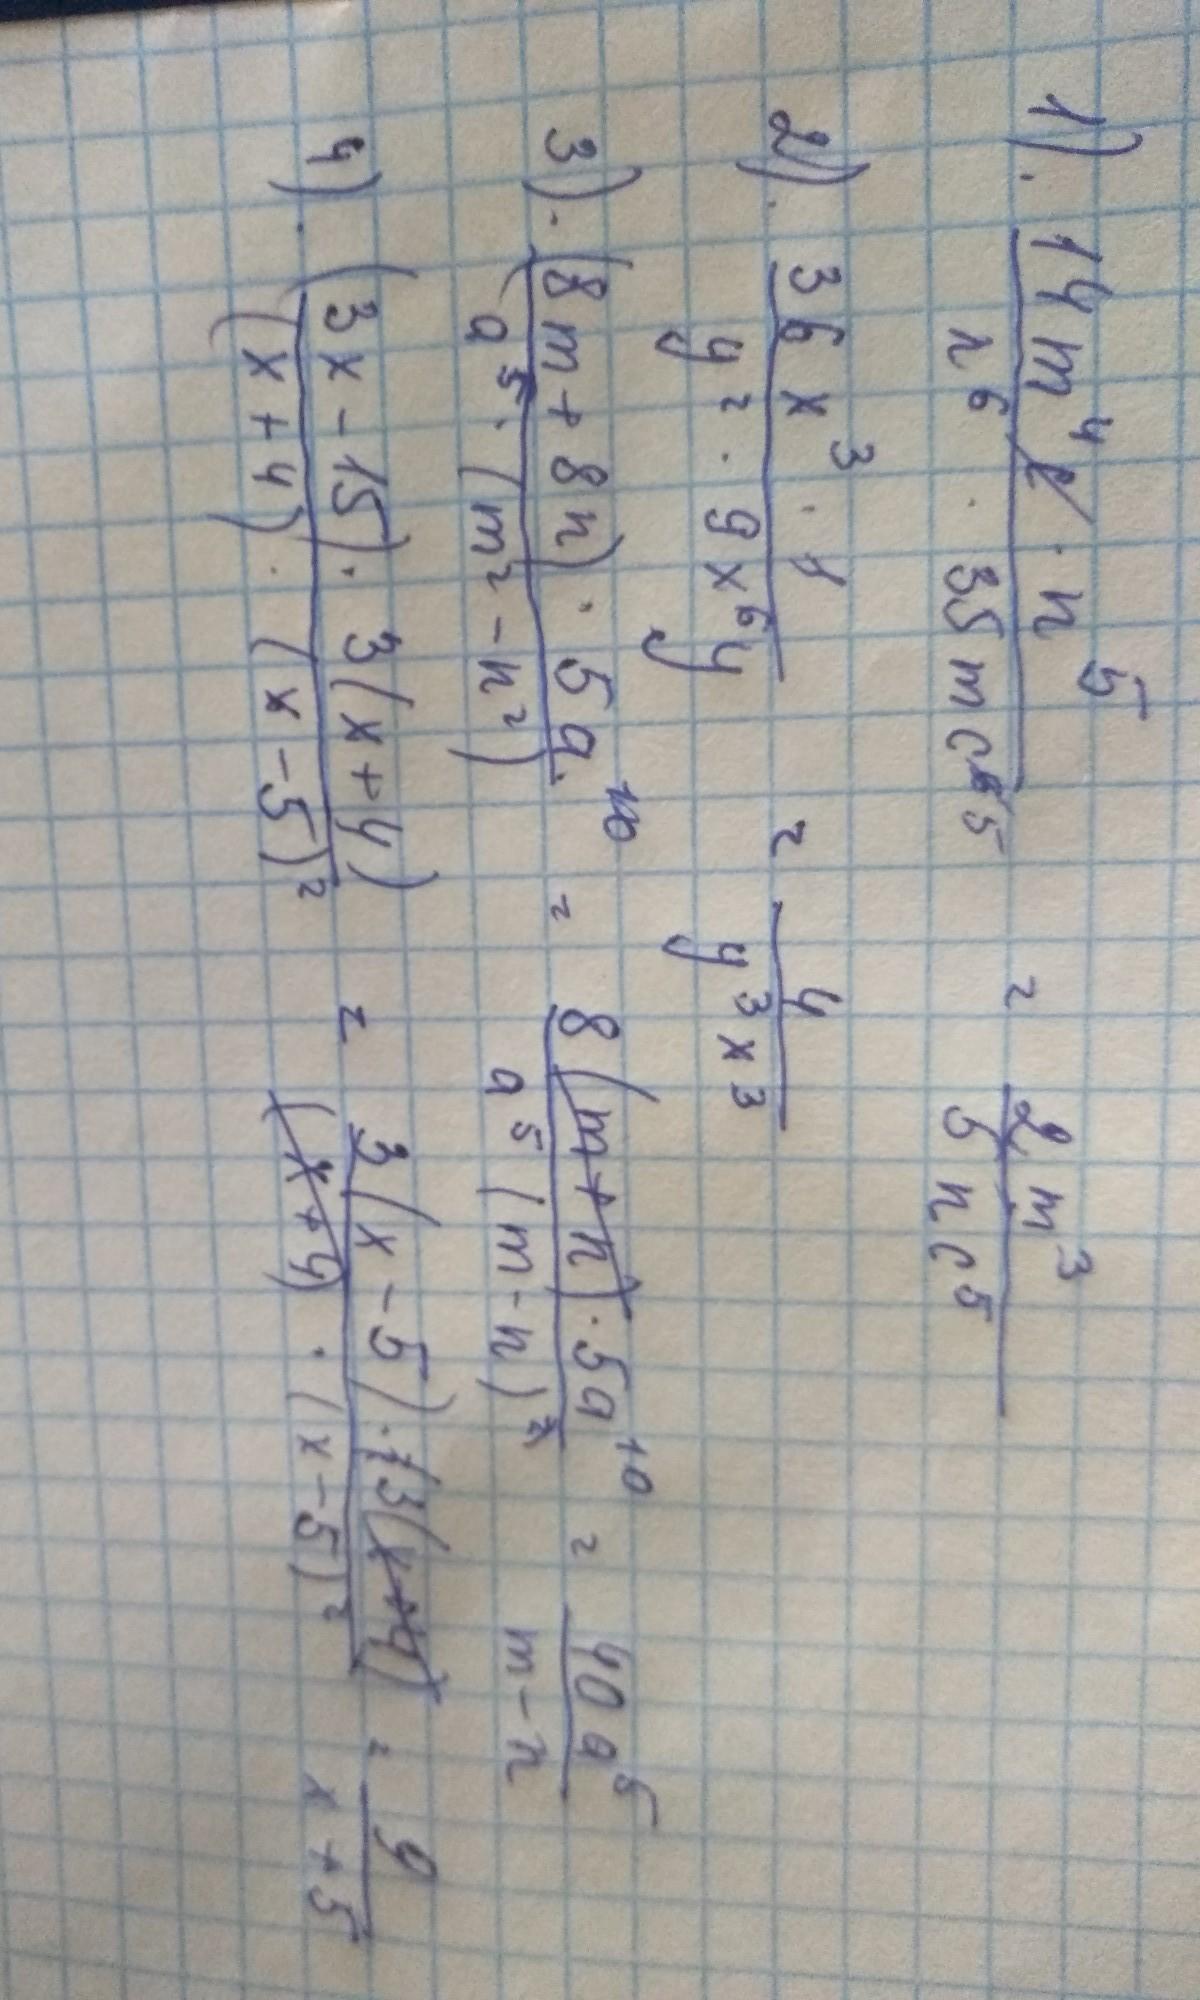 1). 14m⁴ · n⁵ / n⁶ · 35mc⁵ = 2m³ / 5nc⁵
2). 36x³ · 1 / y² · 9x⁶y = 4 / y³x³
3). (8m+8n) · 5a¹⁰ / a⁵ · (m²-n²) = 8(m+n) · 5a¹⁰ / a⁵(m-n) = 40a⁵ / m-n
4). (3x-15) · 3(x+4) / (x+4) · (x-5)² = 3(x-5) · 3(x+4) / (x+4) · (x-5)² = 9 / x+5